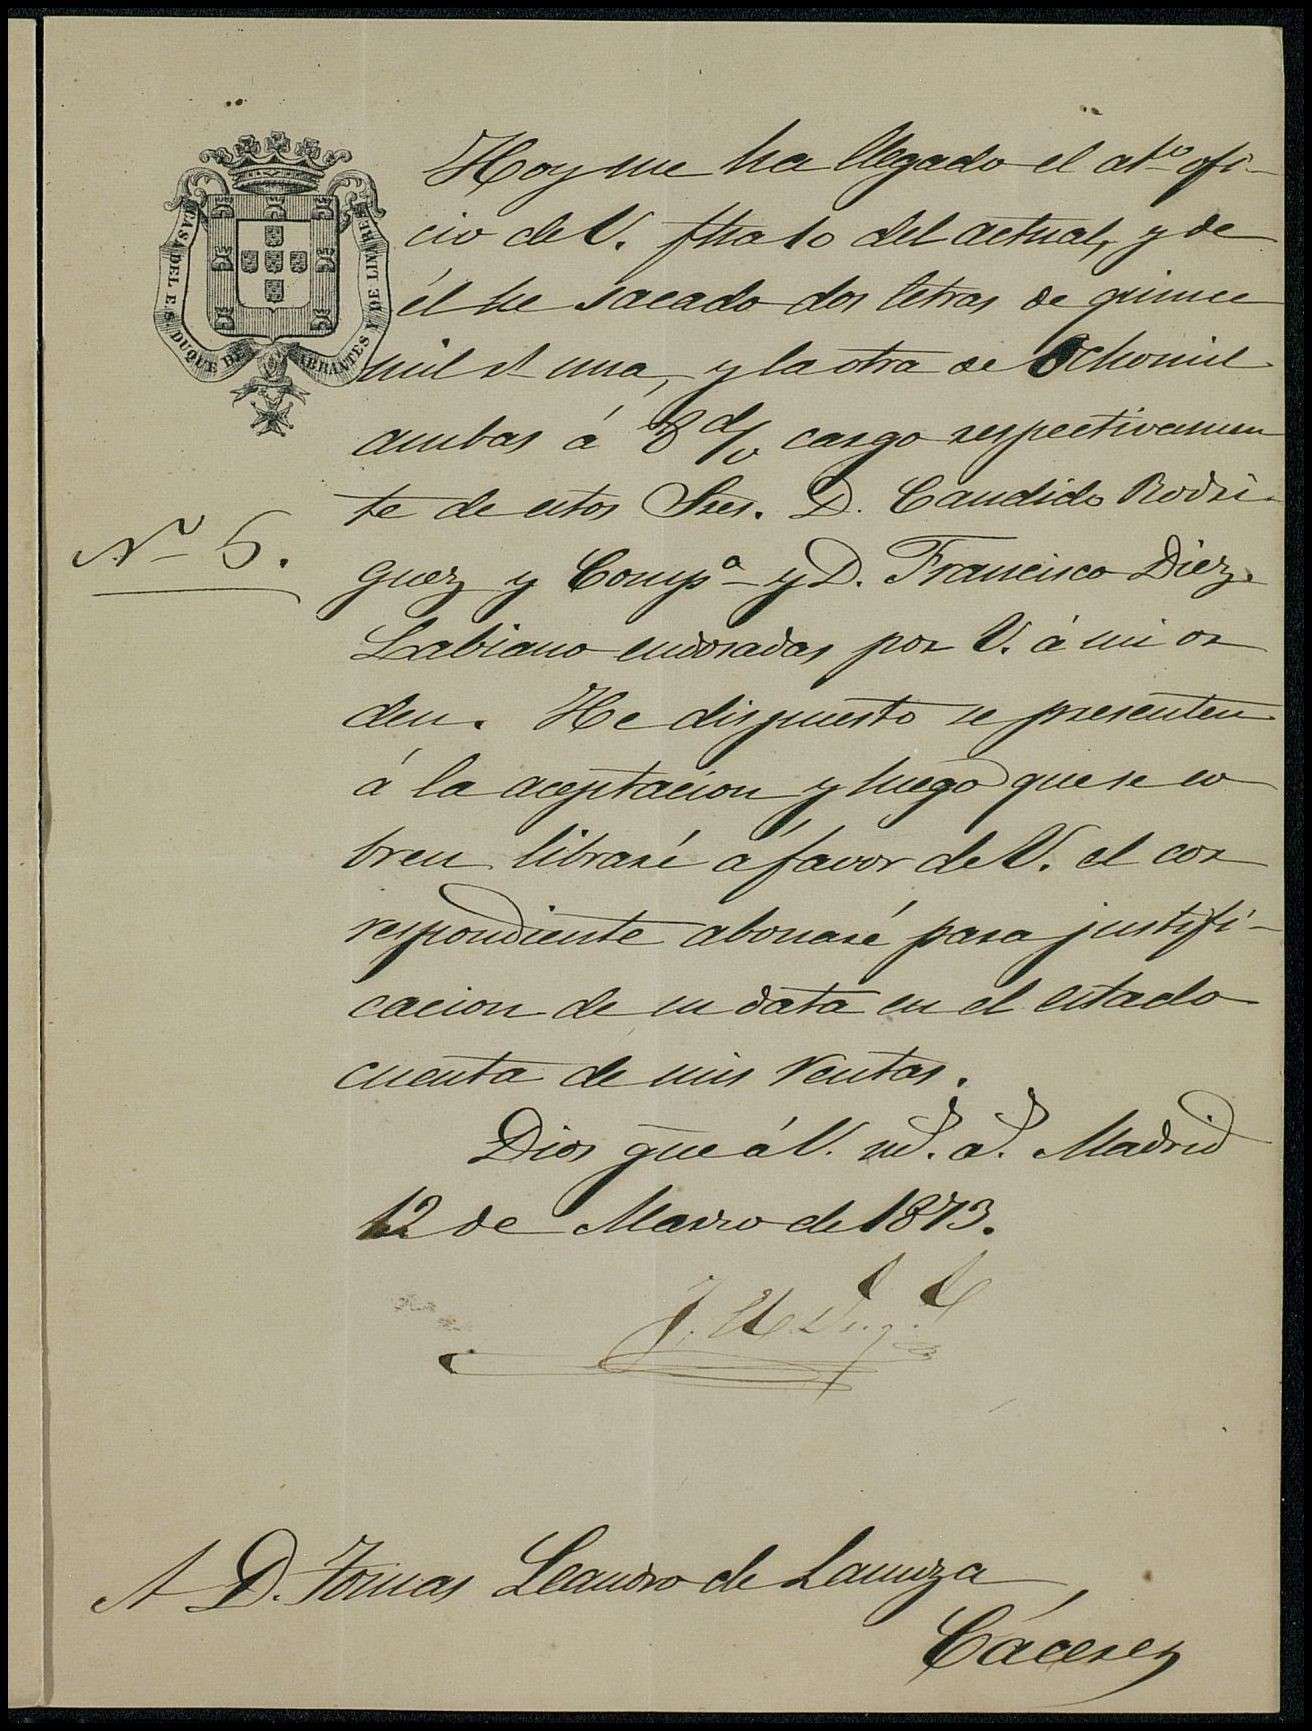 CASA DEL E.S. DUQUE DE ABRANTES Y DE LINARES
Hoy me ha llegado el at.º ofi-
cio de V. fha 10 del actual, y de
él he sacado dos letras de quince
mil rs una, y la otra de Ochomil
ambas á 8 d/v cargo respectivamen
te de estos Sres. D. Candido Rodri-
Nº 5.
guez y Compª y D. Francisco Diez
Labiano endosadas por V. á mi or
den. He dispuesto se presenten
á la aceptacion y luego que se co
bren libraré á favor de V. el cor
respondiente abonaré para justifi-
cacion de su data en el estado
cuenta de mis rentas.
Dios gũe á V. ms. as. Madrid
12 de Marzo de 1873.
A D. Tomas Leandro de Lanuza
Cáceres